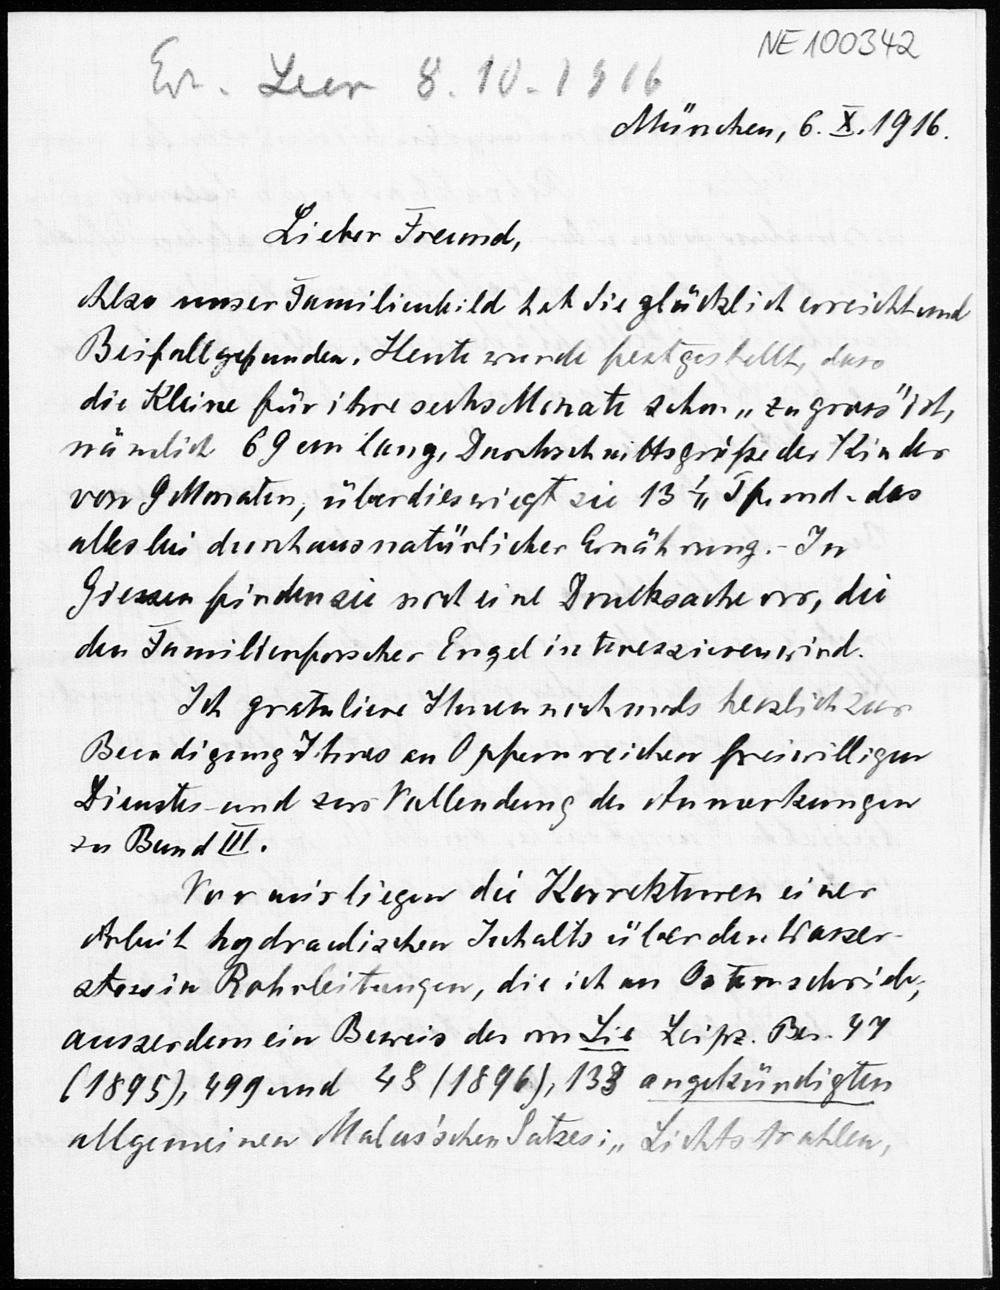 NE 100342
Er. Leer 8.10.1916
München, 6. X. 1916.
Lieber Freund,
Also unser Familienbild hat Sie glücklich erreicht und
Beifall gefunden. Heute wurde festgestellt, dass
die Kleine für ihre sechs Monate schon „zu gross" ist,
nämlich 69 cm lang, Durchschnittsgröße der Kinder
von 9 Monaten, überdies wiegt sie 13 Pfund - das
alles bei durchaus natürlicher Ernährung. - In
Giessen finden sie noch eine Drucksache vor, die
den Familienforscher Engel interessieren wird.
Ich gratuliere Ihnen nochmals herzlich zur
Beendigung Ihres an Opfern reichen freiwilligen
Dienstes und zur Vollendung der Anmerkungen
zu Band III.
Vor mir liegen die Korrekturen einer
Arbeit hydraulischen Inhalts über den Wasser-
stoss in Rohrleitungen, die ich an Ostern schrieb,
ausserdem ein Beweis des von Lie Leipz. Ber. 47
(1895), 499 und 48 (1896), 133 angekündigten
allgemeinen Malus'schen Satzes: „Lichtstrahlen,